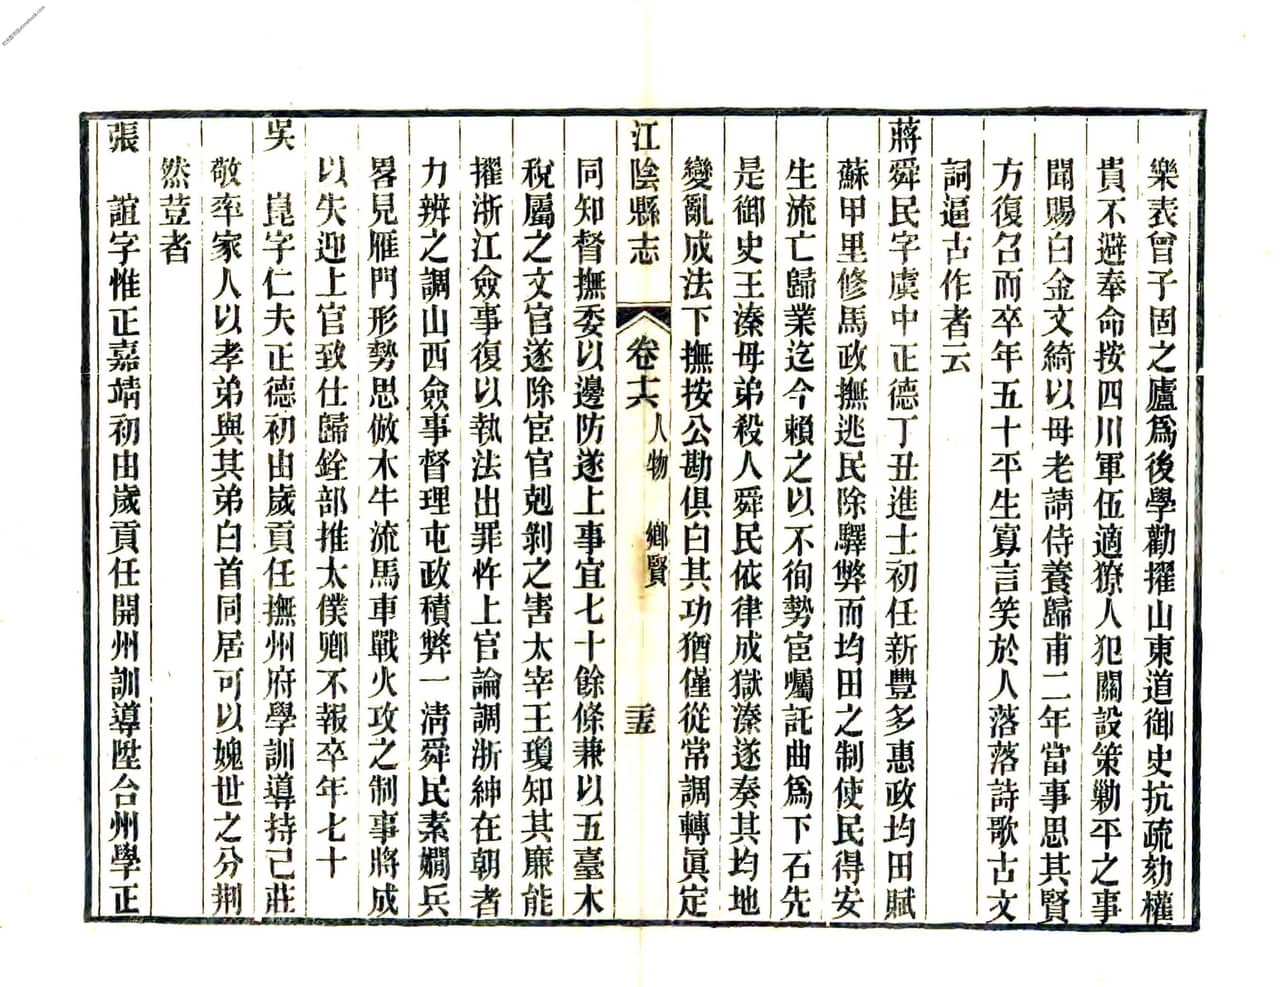 樂表曾子固之廬爲後學勸擢山東道御史抗疏劾權
貴不避奉命按四川軍伍適獠人犯關設策勦平之事
聞賜白金文綺以母老請侍養歸甫二年當事思其賢
方復召而卒年五十平生寡言笑於人落落詩歌古文
詞逼古作者云
蔣舜民字虞中正德丁丑進士初任新豐多惠政均田賦
蘇甲里修馬政撫逃民除驛弊而均田之制使民得安
生流亡歸業迄今賴之以不徇勢宦囑託曲爲下石先
是御史王溱母弟殺人舜民依律成獄溱遂奏其均地
變亂成法下撫按公勘俱白其功猶僅從常調轉眞定
江陰縣志 卷十六 人物 鄉賢 二十五
同知督撫委以邊防遂上事宜七十餘條兼以五臺木
稅屬之文官遂除宦官剋剝之害太宰王瓊知其廉能
擢浙江僉事復以執法出罪忤上官論調浙紳在朝者
力辨之調山西僉事督理屯政積弊一清舜民素嫺兵
畧見雁門形勢思倣木牛流馬車戰火攻之制事將成
以失迎上官致仕歸銓部推太僕卿不報卒年七十
吳 崑字仁夫正德初由歲貢任撫州府學訓導持己莊
敬率家人以孝弟與其弟白首同居可以媿世之分荆
然荳者
張 誼字惟正嘉靖初由歲貢任開州訓導陞合州學正